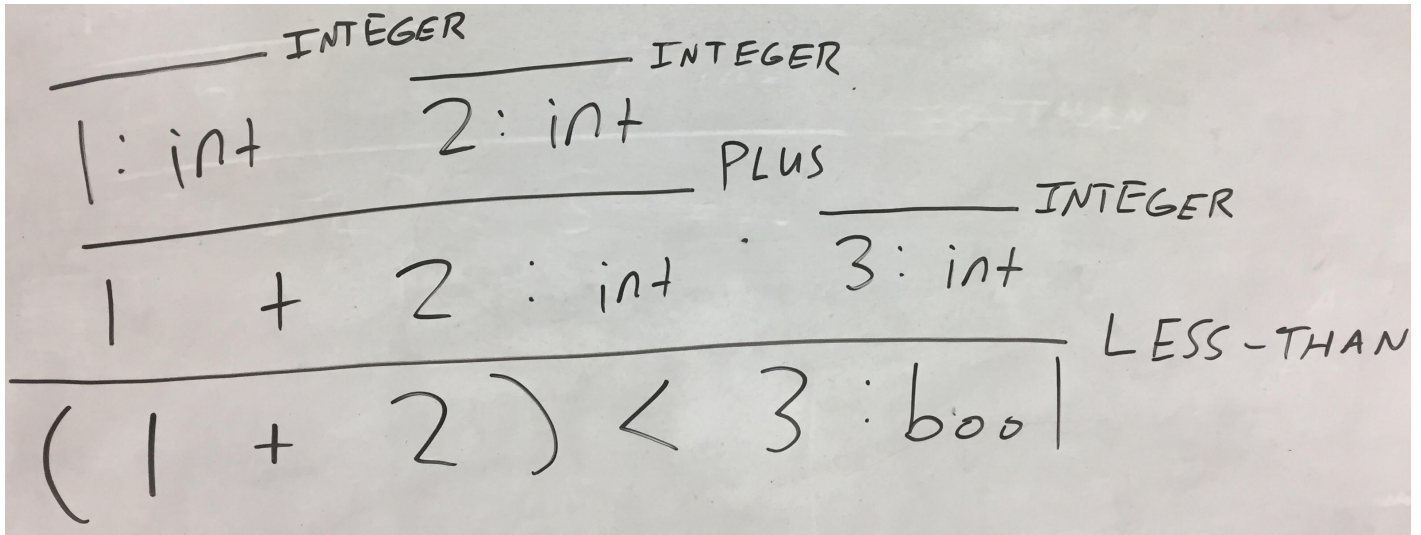 INTEGER INTEGER
1 : int 2 : int
PLUS
INTEGER
1 + 2 : int 3 : int
LESS-THAN
(1 + 2) < 3 : bool